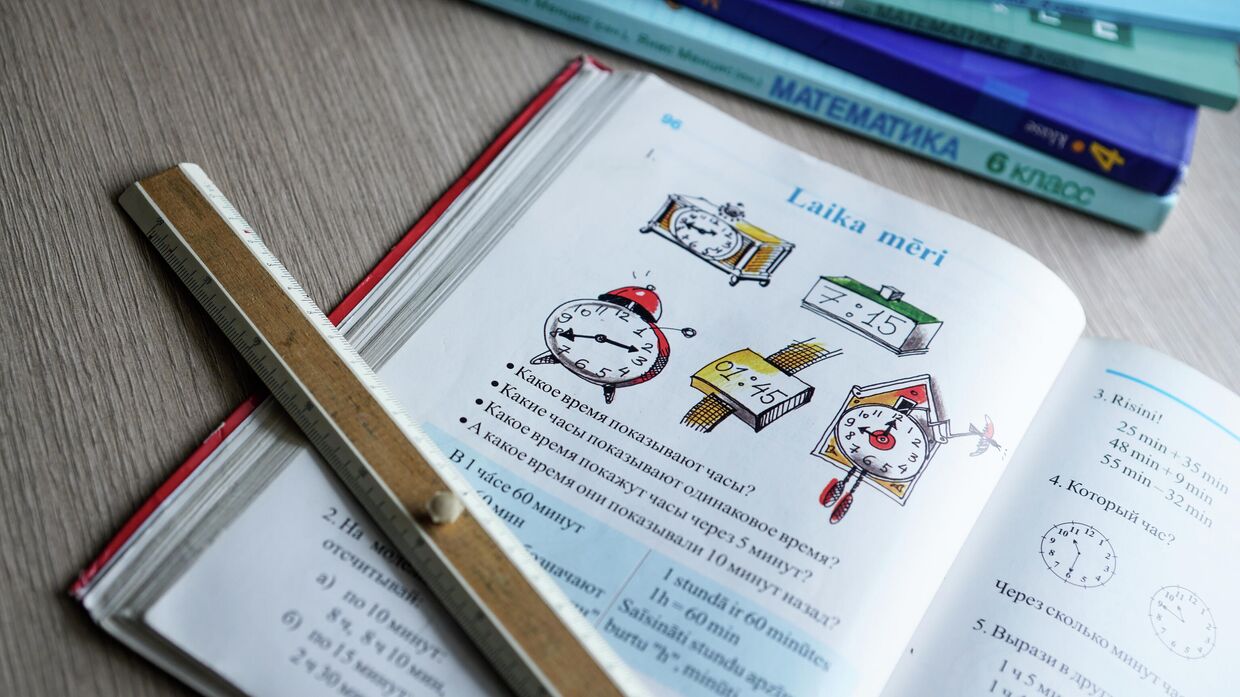 МАТЕМАТИКЕ 3 класс
4 klase
Янис Менцис (сен.), Янис Менцис (юн.) МАТЕМАТИКА 6 класс
96
1.
Laika mēri
7:15
01:45
• Какое время показывают часы?
• Какие часы показывают одинаковое время?
• Какое время покажут часы через 5 минут?
• А какое время они показывали 10 минут назад?
В 1 часе 60 минут
60 мин
обозначают
1 stundā ir 60 minūtes
1h = 60 min
Saīsināti stundu apzīm
burtu "h", minūti
2. На
отсчитывай:
а) по 10 минут:
8 ч, 8 ч 10 мин,
б) по 15 минут
2 ч 30 мин
3. Risini!
25 min + 35 min
48 min + 9 min
55 min – 32 min
4. Который час?
Через сколько минут
5. Вырази в
1 ч 5 мин